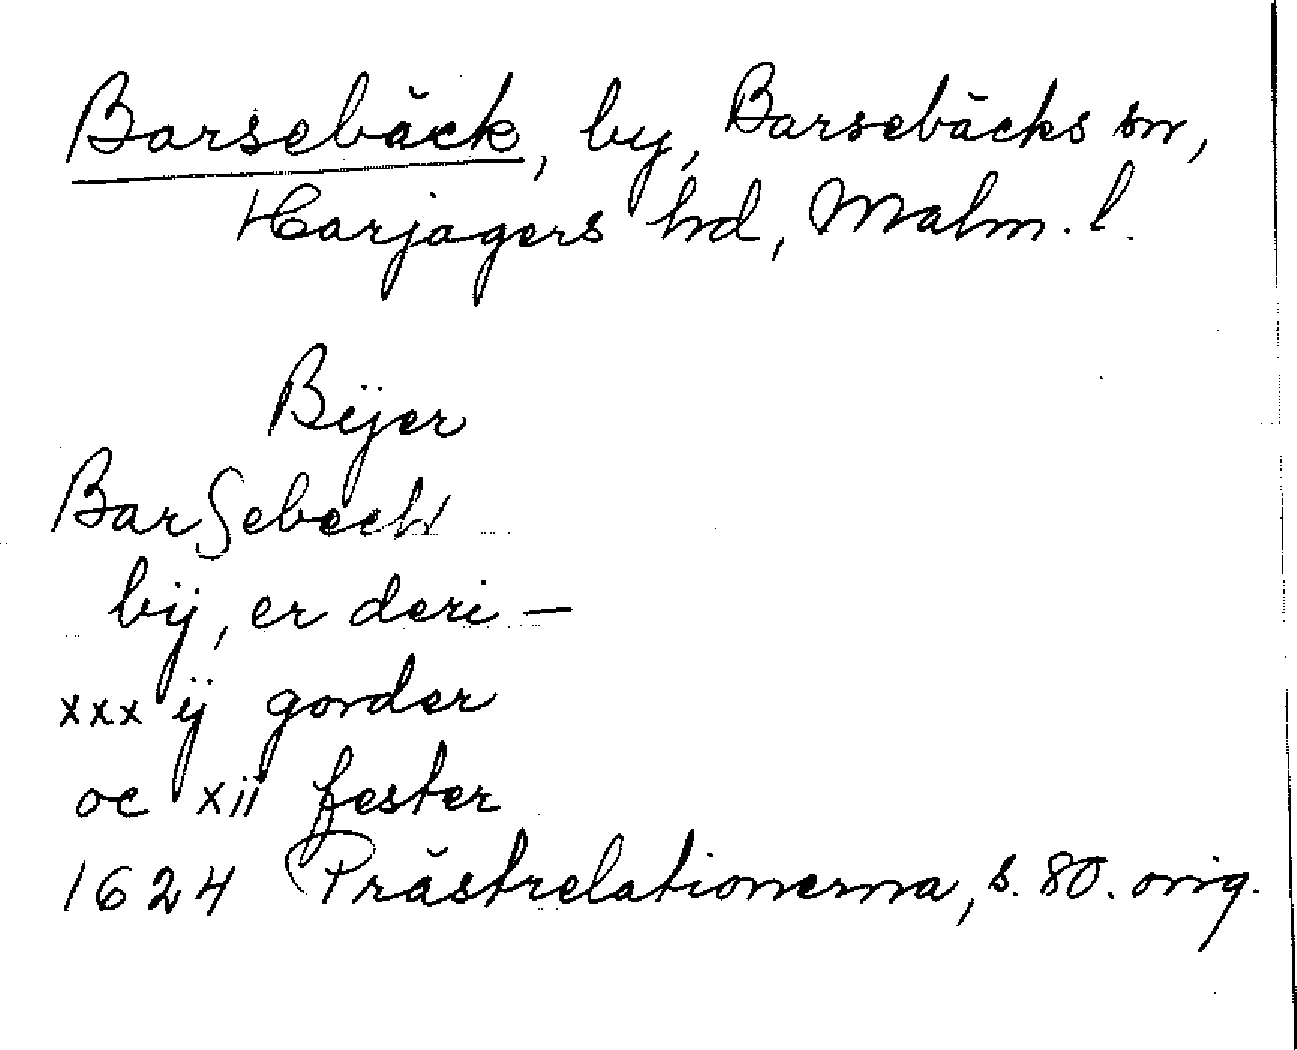 Barsebäck, by, Barsebäcks sn,
Harjagers hd, Malm. l.
Bÿer
Barsebeck
bij, er deri —
xxx ij gorder
oc xii fester
1624 Prästrelationerna, s. 80. orig.